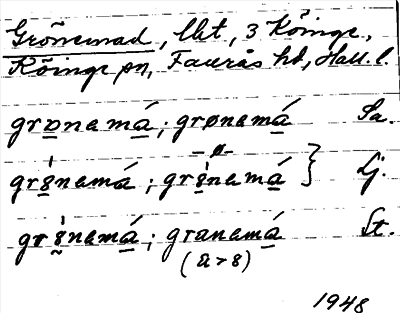 Grönemad, lht, 3 Köinge,
Köinge sn, Faurås hd, Hall. l.
grønamá; grønamá Sa.
-ø-
gr8̀namá; gr8̀namá } Lj.
gr8̀namá; granamá St.
(a > 8)
1948